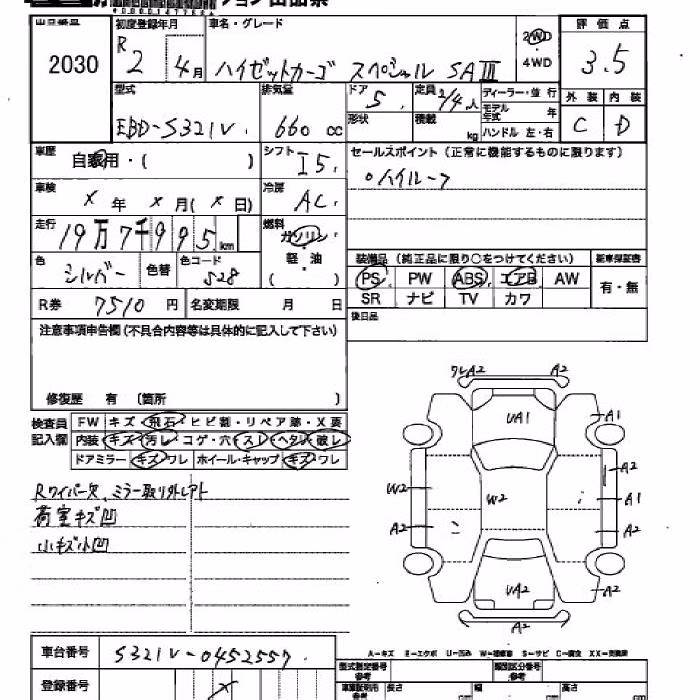 出品番号 初度登録年月 車名・グレード 評価点
2030 R2 4月 ハイゼットカーゴ スペシャル SAⅢ 2WD・4WD 3.5
型式 排気量 ドア 定員 ディーラー・並行 外装 内装
EBD-S321V. 660cc 5. 2/4人 モデル年式 年 C D
形状 積載 kg ハンドル 左・右
車歴 自家用・( ) シフト I5. セールスポイント(正常に機能するものに限ります)
○ハイルーフ
車検 × 年 ×月(×日) 冷房 AC.
走行 19万7千995km 燃料 ガソリン・軽・油( )
色 シルバー 色替 色コード S28
装備品(純正品に限り○をつけてください) 新車保証書
PS PW ABS エアB AW 有・無
SR ナビ TV カワ
R券 7510円 名変期限 月 日
後日品
注意事項申告欄(不具合内容等は具体的に記入して下さい)
修復歴 有〔箇所 〕
検査員記入欄 FW キズ・飛石・ヒビ割・リペア跡・X要
内装 キズ・汚レ・コゲ・穴・スレ・ヘタレ・破レ
ドアミラー キズ・ワレ ホイール・キャップ キズ・ワレ
Rワイパー欠、ミラー取り外しアト
荷室キズ凹
小キズ小凹
ワレA2 A2
UA1 A1
A2
W2 W2 A1
A2 A2
UA2 A2
A2
A-キズ E-エクボ U-凹み W-補修跡 S-サビ C-腐食 XX-交換済
車台番号 S321V-0452557.
登録番号 ×
型式指定番号 類別区分番号
長さ cm 幅 cm 高さ cm